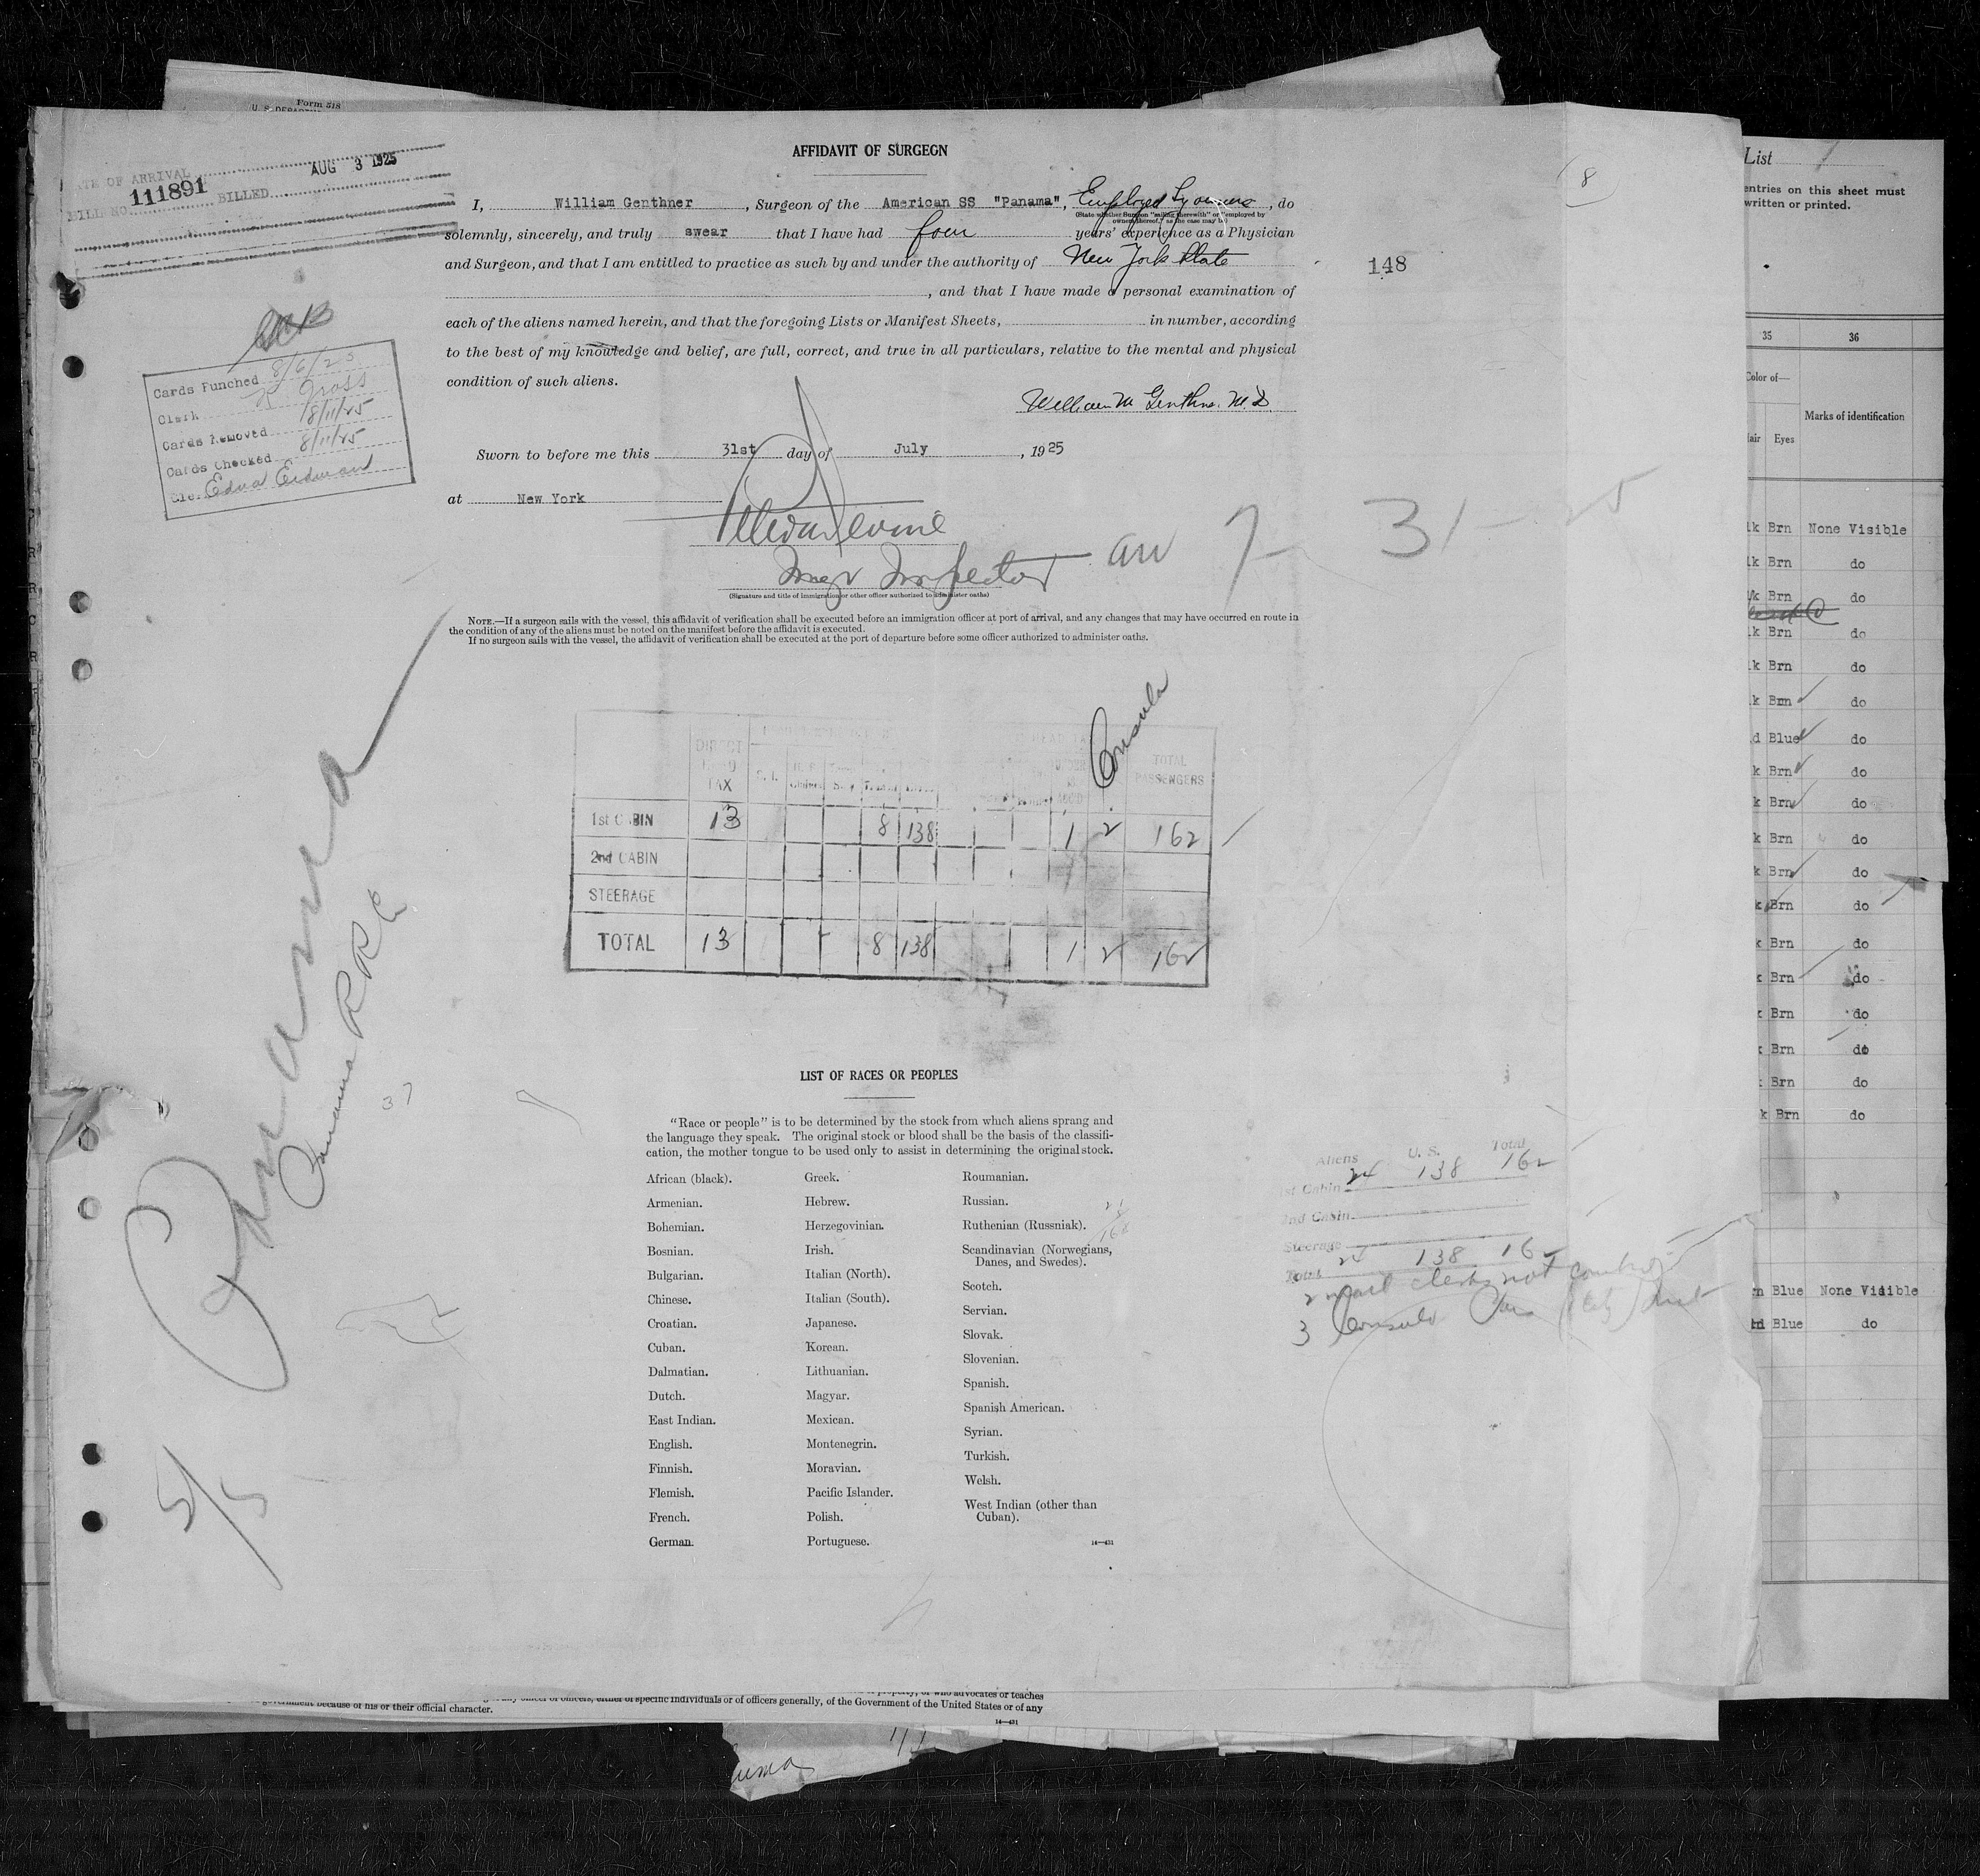 Form 518
DATE OF ARRIVAL AUG 3 1925
BILL NO. 111891 BILLED
AFFIDAVIT OF SURGEON
8
I, William Genthner, Surgeon of the American SS "Panama", Employed by owners, do
(State whether Surgeon "sailing therewith" or "employed by
owners thereof," as the case may be)
solemnly, sincerely, and truly swear that I have had four years' experience as a Physician
and Surgeon, and that I am entitled to practice as such by and under the authority of New York State
148
, and that I have made a personal examination of
each of the aliens named herein, and that the foregoing Lists or Manifest Sheets, in number, according
to the best of my knowledge and belief, are full, correct, and true in all particulars, relative to the mental and physical
condition of such aliens.
William M Genthner M.D.
Cards Punched 8/6/25
Clerk Gross
Cards Removed 8/11/25
Cards Checked 8/11/25
Cle. Edna Erdmann
Sworn to before me this 31st day of July, 1925
at New York
Inspector
arr 7-31-25
(Signature and title of immigration or other officer authorized to administer oaths)
NOTE.—If a surgeon sails with the vessel, this affidavit of verification shall be executed before an immigration officer at port of arrival, and any changes that may have occurred en route in
the condition of any of the aliens must be noted on the manifest before the affidavit is executed.
If no surgeon sails with the vessel, the affidavit of verification shall be executed at the port of departure before some officer authorized to administer oaths.
Panama
Panama RR Co
37
5/5
Consula
DIRECT HEAD TAX
TOTAL PASSENGERS
1st CABIN 13 8 138 1 2 162
2nd CABIN
STEERAGE
TOTAL 13 8 138 1 2 162
LIST OF RACES OR PEOPLES
"Race or people" is to be determined by the stock from which aliens sprang and
the language they speak. The original stock or blood shall be the basis of the classifi-
cation, the mother tongue to be used only to assist in determining the original stock.
African (black).
Armenian.
Bohemian.
Bosnian.
Bulgarian.
Chinese.
Croatian.
Cuban.
Dalmatian.
Dutch.
East Indian.
English.
Finnish.
Flemish.
French.
German.
Greek.
Hebrew.
Herzegovinian.
Irish.
Italian (North).
Italian (South).
Japanese.
Korean.
Lithuanian.
Magyar.
Mexican.
Montenegrin.
Moravian.
Pacific Islander.
Polish.
Portuguese.
Roumanian.
Russian.
Ruthenian (Russniak).
Scandinavian (Norwegians,
Danes, and Swedes).
Scotch.
Servian.
Slovak.
Slovenian.
Spanish.
Spanish American.
Syrian.
Turkish.
Welsh.
West Indian (other than
Cuban).
14—431
Aliens U. S. Total
1st Cabin 24 138 162
2nd Cabin
Steerage
Total 24 138 162
2 mail clerks not
3 Consuls
List 1
entries on this sheet must
written or printed.
35 36
Color of—
Hair Eyes
Marks of identification
Brn None Visible
Brn do
Brn do
Brn do
Brn do
Brn do
Blue do
Brn do
Brn do
Brn do
Brn do
Brn do
Brn do
Brn do
Brn do
Brn do
Brn do
Brn do
Blue None Visible
Blue do
property, or who advocates or teaches
any officer or officers, either of specific individuals or of officers generally, of the Government of the United States or of any
government because of his or their official character.
14—431